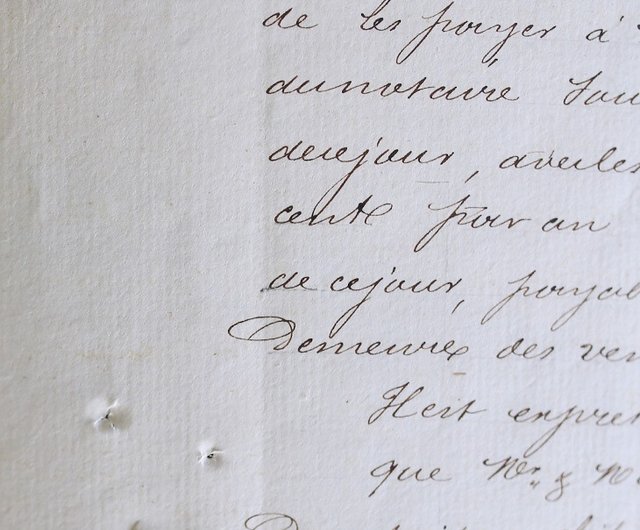 de les payer à
du notaire sou
de ce jour, avec les
cents par an
de ce jour, payab
Demeure des ven
Il est expres
que Mr. & M